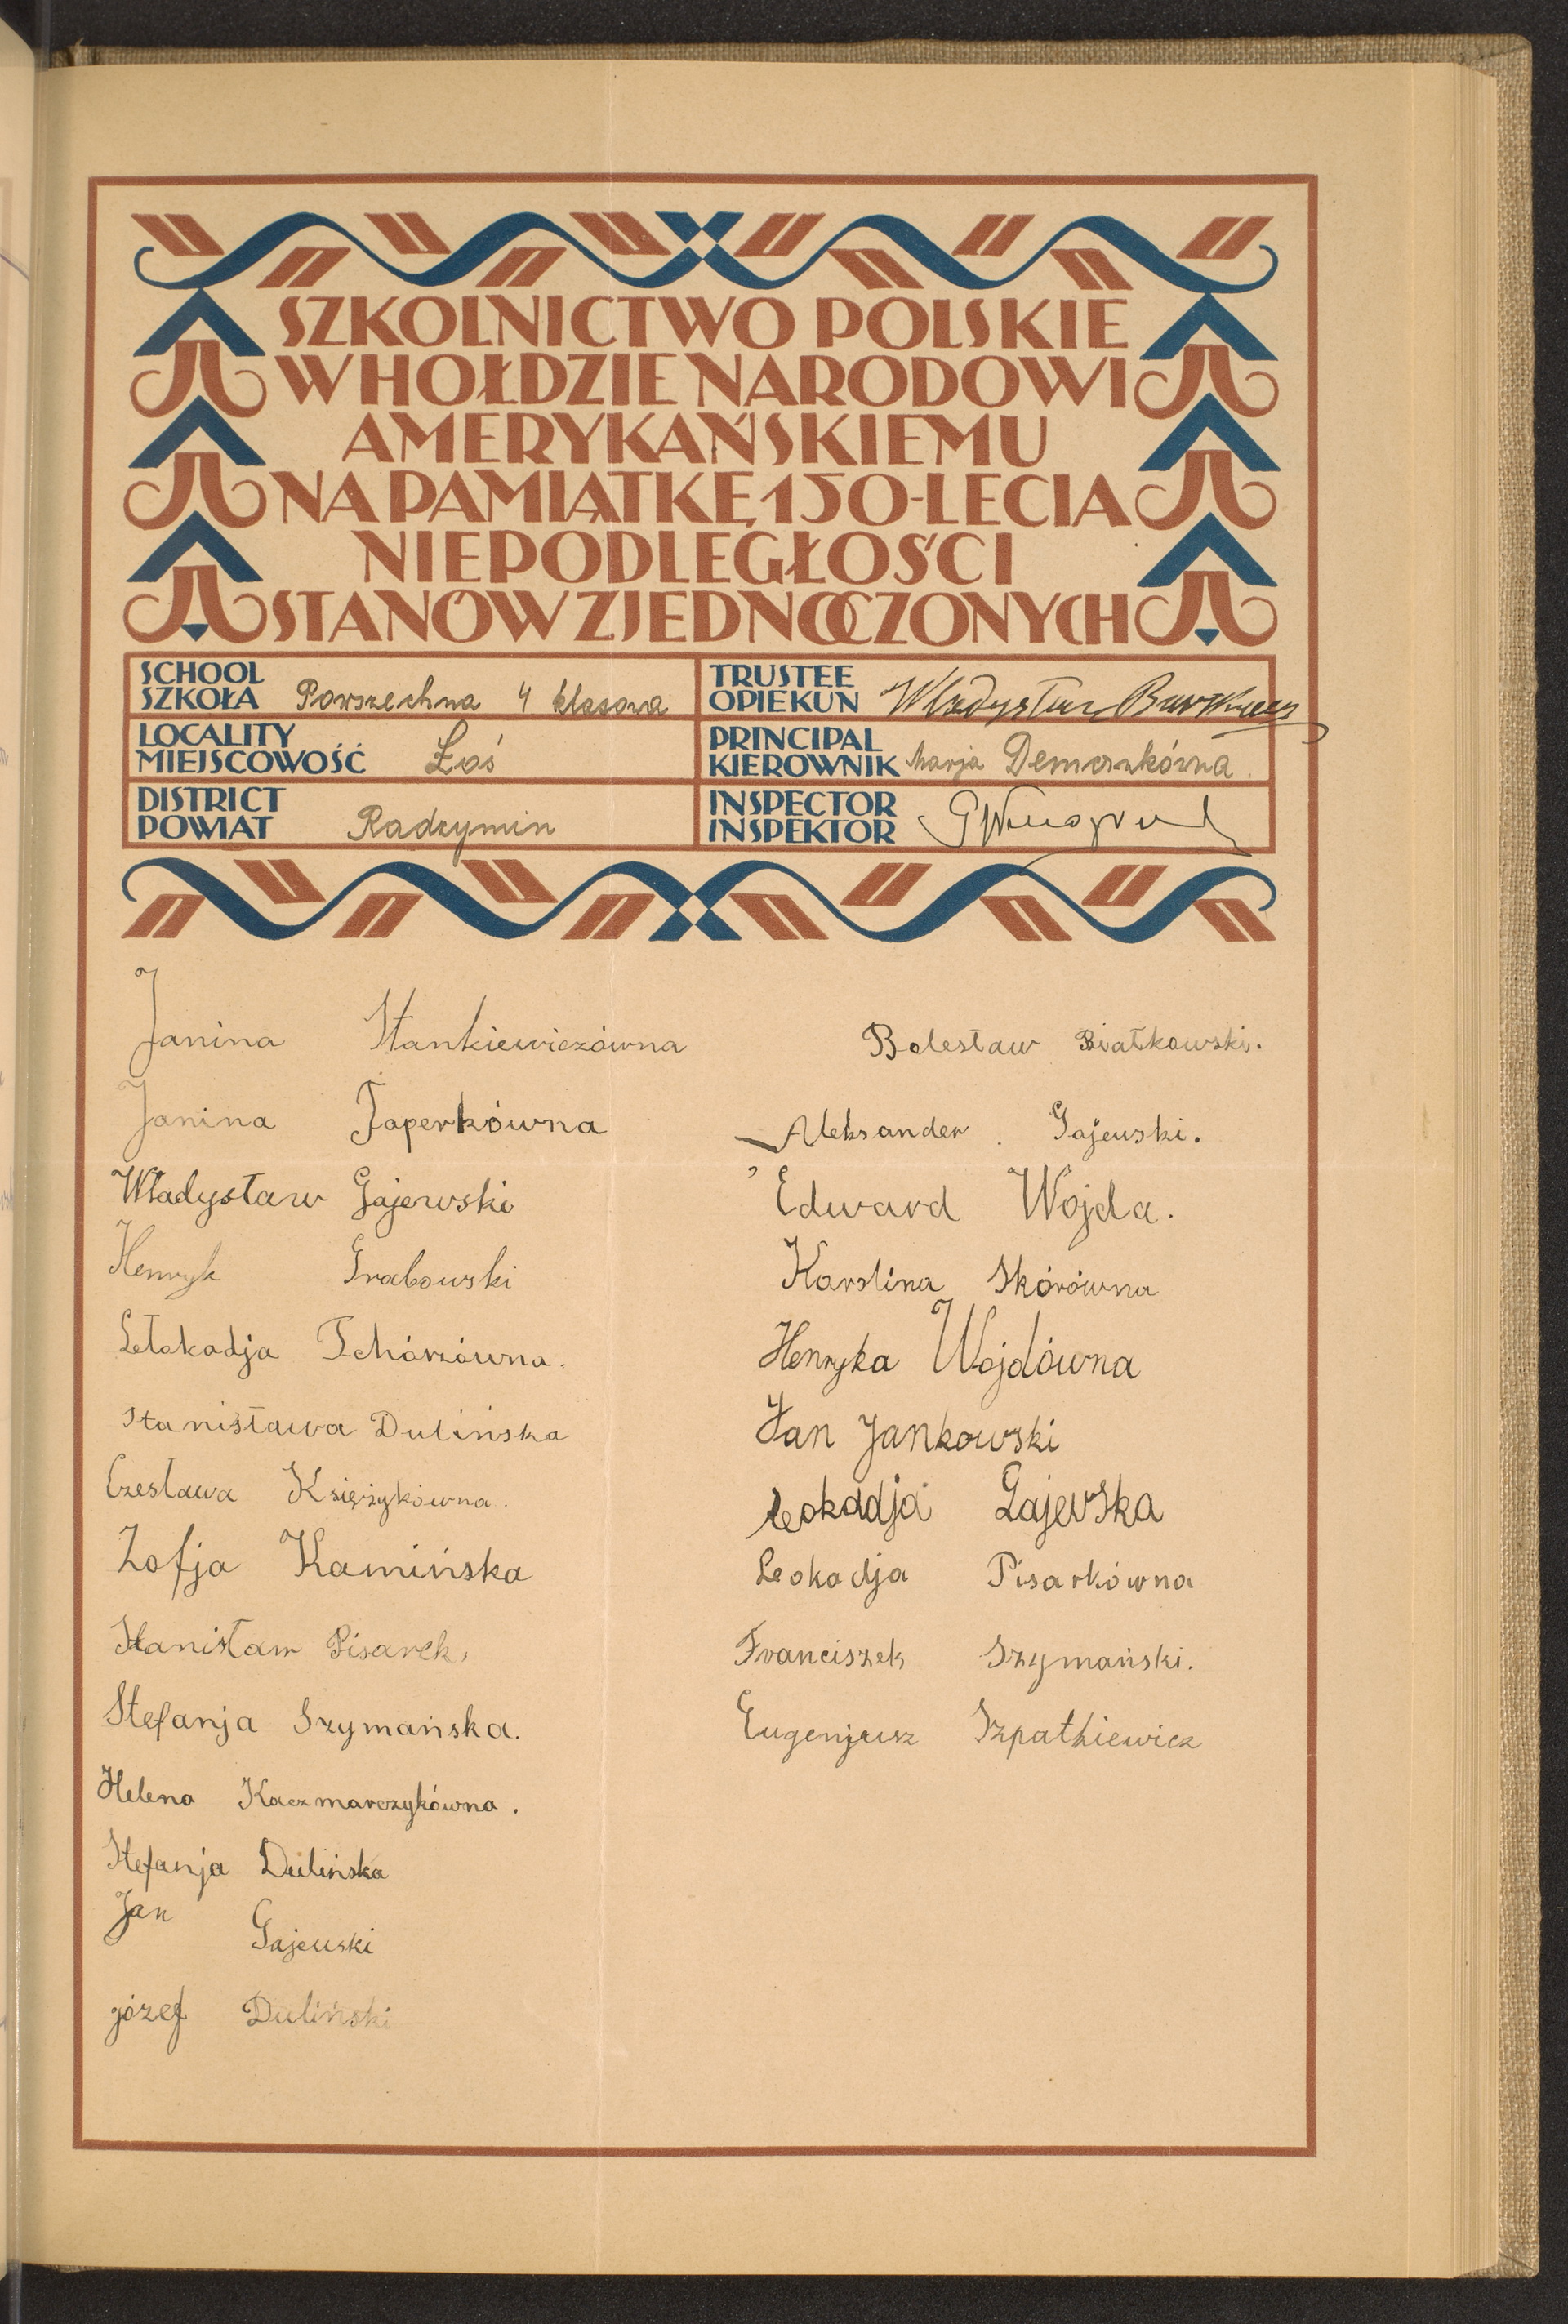 SZKOLNICTWO POLSKIE
W HOŁDZIE NARODOWI
AMERYKAŃSKIEMU
NA PAMIĄTKĘ 150-LECIA
NIEPODLEGŁOŚCI
STANÓW ZJEDNOCZONYCH
SCHOOL
SZKOŁA Powszechna 4 klasowa
TRUSTEE
OPIEKUN Władysław
LOCALITY
MIEJSCOWOŚĆ Łoś
PRINCIPAL
KIEROWNIK Marja
DISTRICT
POWIAT Radzymin
INSPECTOR
INSPEKTOR
Janina Stankiewiczówna
Janina Taperkówna
Władysław Gajewski
Henryk Grabowski
Lełokadja Tchórzówna.
Stanisława Dulińska
Czesława Księżykówna.
Zofja Kamińska
Stanisław Pisarek,
Stefanja Szymańska.
Helena Kaczmarczykówna.
Stefanja Dulińska
Jan Gajewski
józef Duliński
Bolesław Białkowski.
Aleksander. Gajewski.
Edward Wojda.
Karolina Skórówna
Henryka Wojdówna
Jan Jankowski
Leokadja Gajewska
Leokadja Pisarkówna
Franciszek Szymański.
Eugenjusz Szpatkiewicz